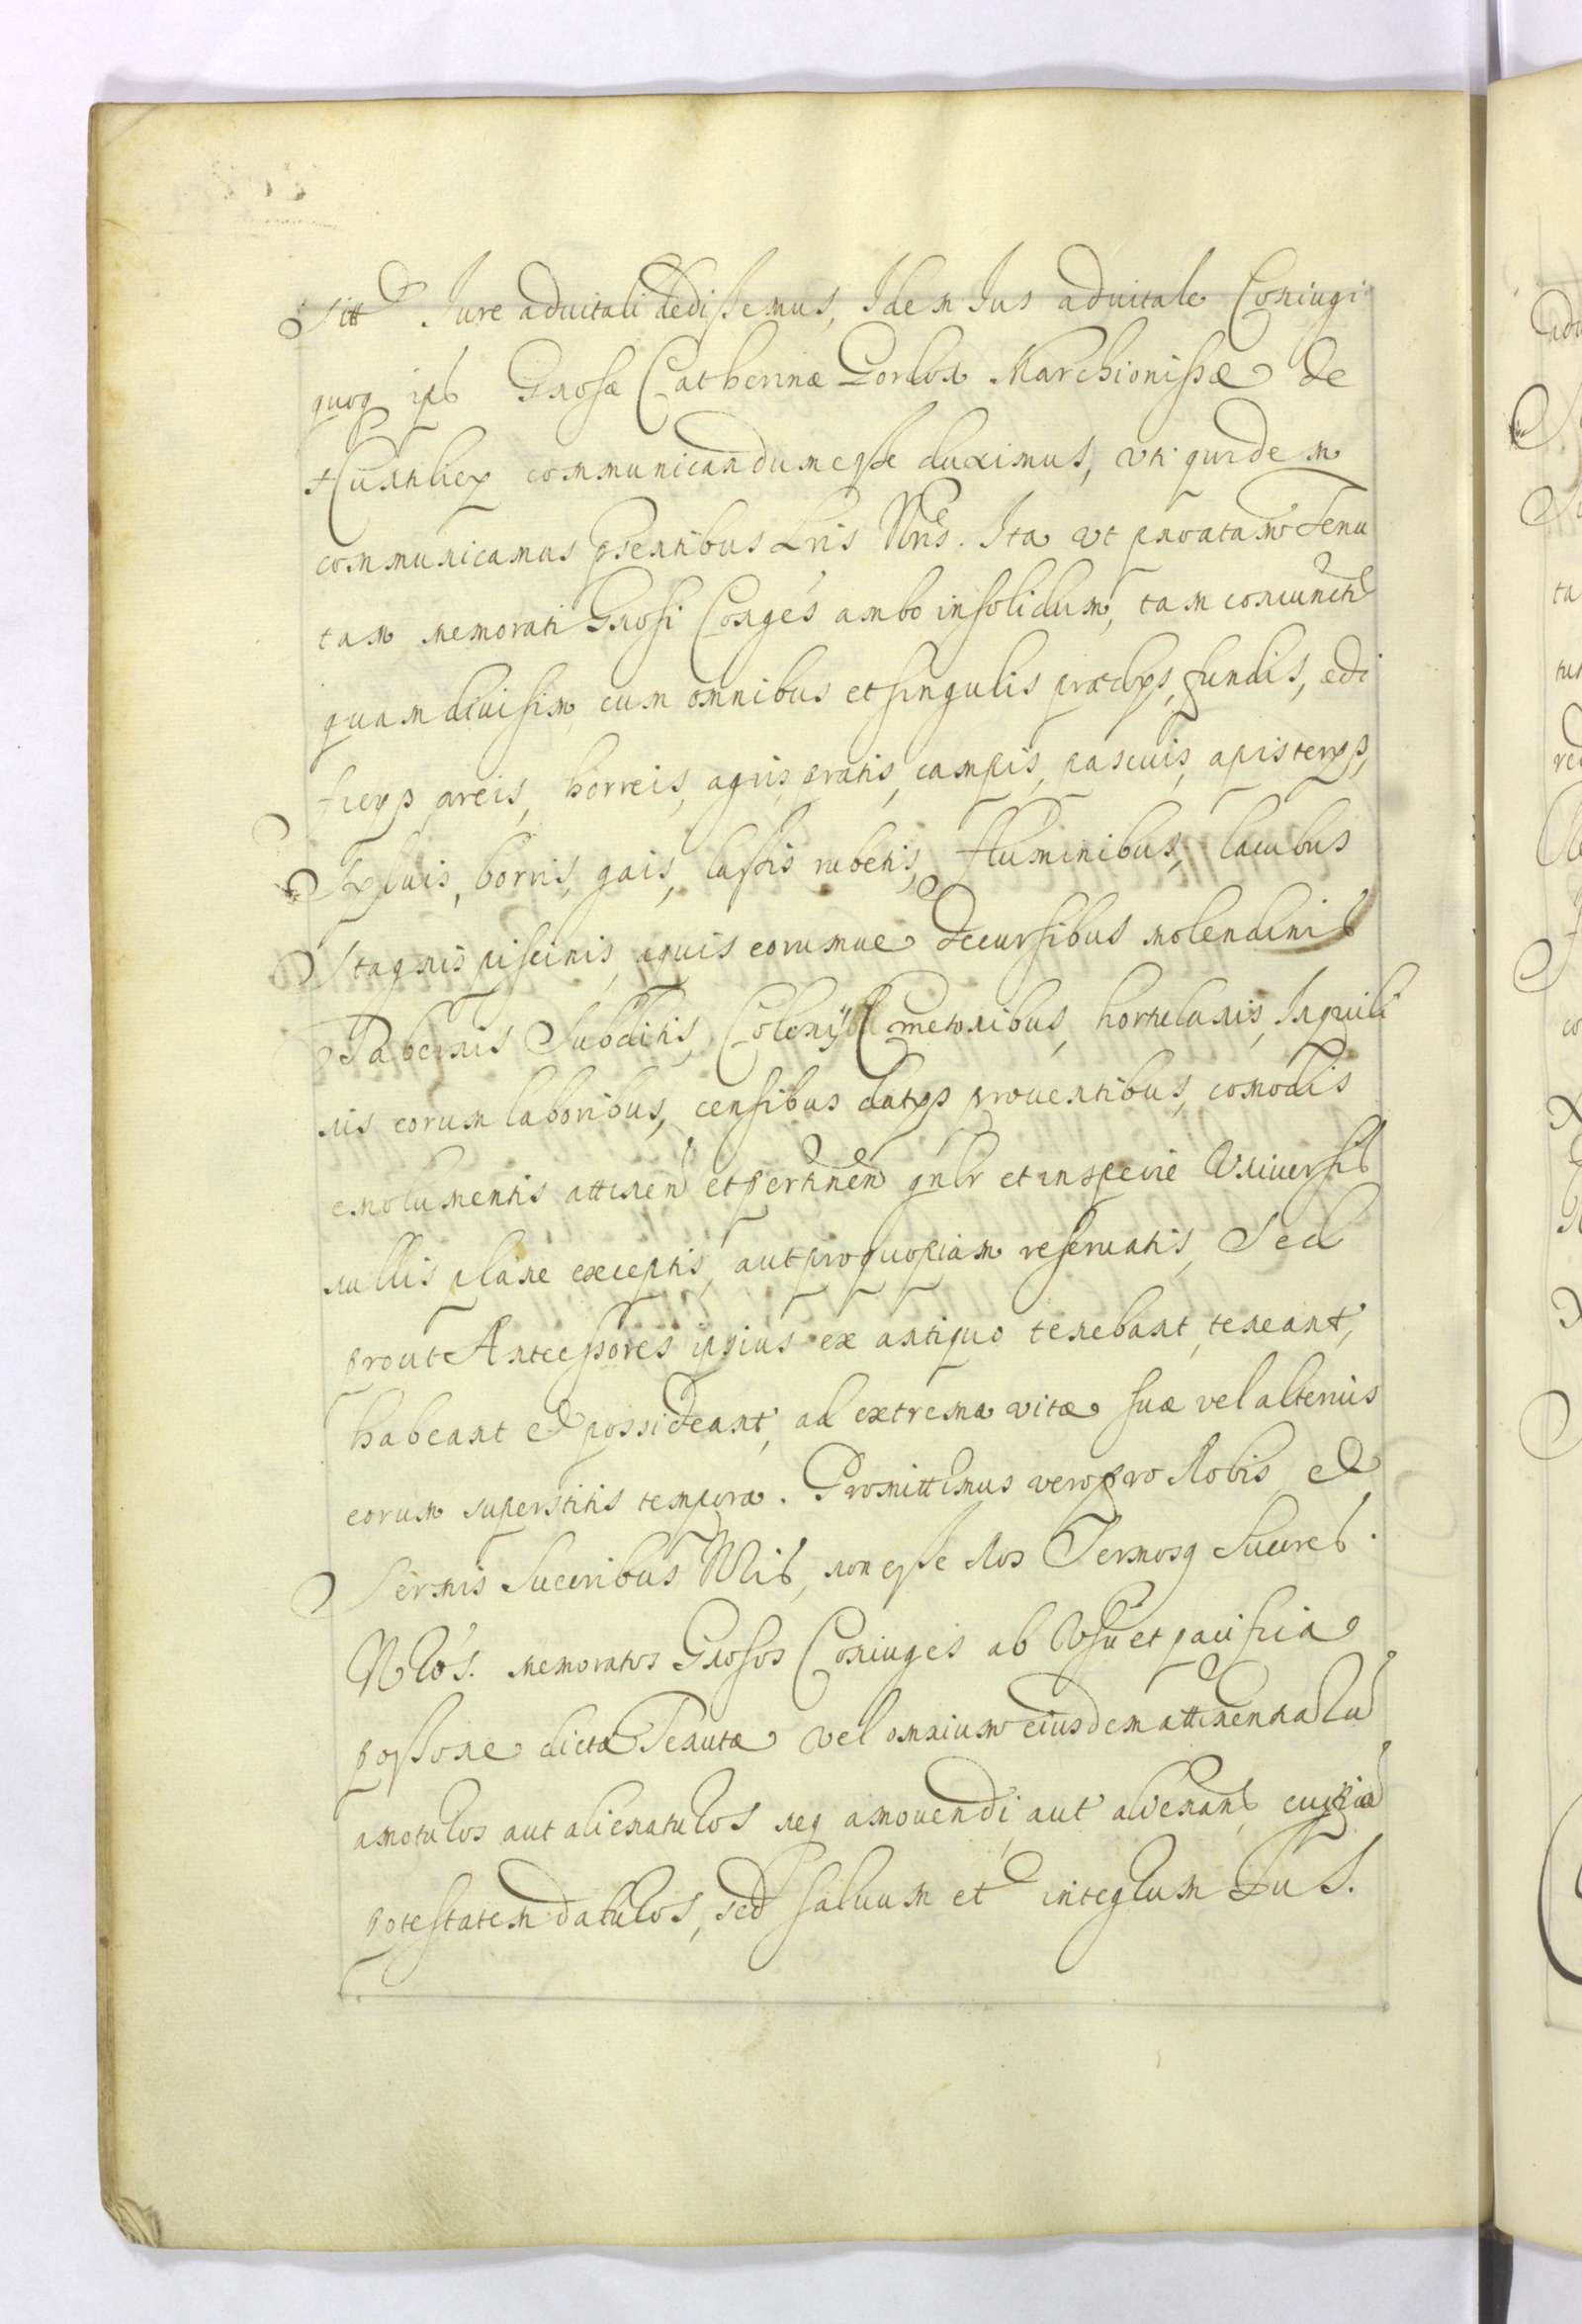 sitt. Jure advitali dedissemus, Idem Jus advitale Coniugi
quoq ips Gnosæ Catherinæ Gordon Marchionissæ de
Huntliex communicandum esse duximus, vti quidem
communicamus psentibus Lris Nris. Ita vt pnoatam Tenu
tam memorati Gnosi Conges ambo insolidum, tam coniunctī
quam diuisim cum omnibus et singulis prædys, fundis, ædi
ficys areis, horreis, agris pratis, campis, pascuis, apisterys,
Syluis, borris, gais, lustis rubetis, fluminibus, lacubus
Stagnis piscinis, aquis eorumue decursibus molendinis
Tabernis Subditis, Colonijs Cmetonibus, hortulanis, Inquili
nis eorum laboribus, censibus datys prouentibus, comodis
emolumentis attinen et pertinen gnlr et in specie Vniuersis
nullis plane exceptis, aut pro quopiam reseruatis, Sed
prout Antecessores ipsius ex antiquo tenebant, teneant,
habeant et possideant, ad extrema vitæ suæ vel alterius
eorum superstitis tempora. Promittimus vero pro Nobis et
Sermis Succribus Nris, non esse Nos Sermosq Succres.
Nros. memoratos Gnosos Coniuges ab Vsu et pacifica
possone dictæ Tenutæ vel omnium eiusdem attinentia
amoturos aut alienaturos neq amouendi, aut alienan cuipia
potestatem daturos, sed saluum et integrum Jus.